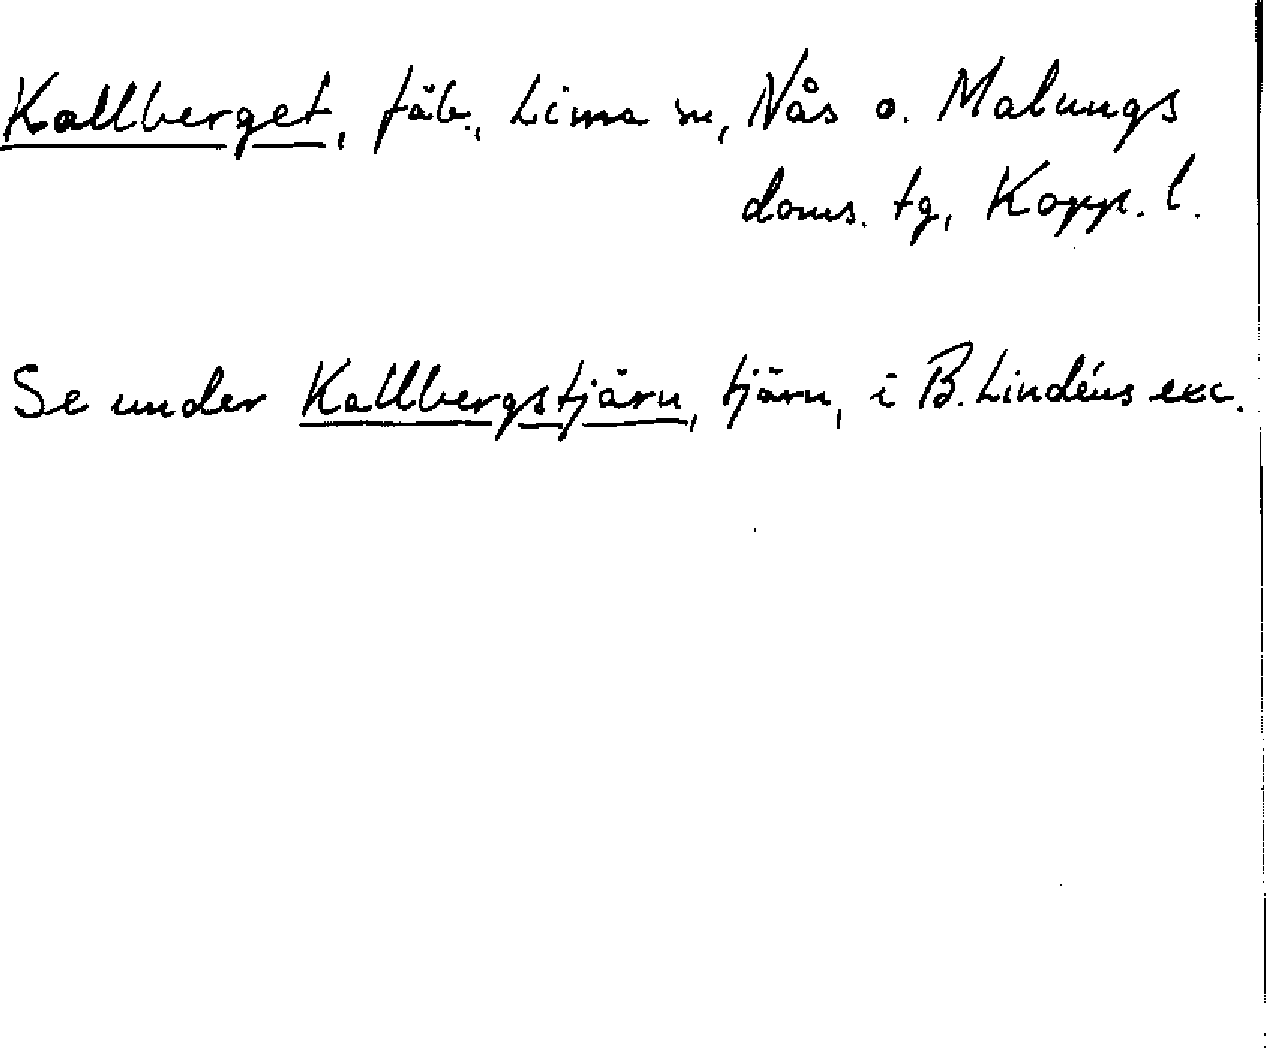 Kallberget, fäb., Lima sn, Nås o. Malungs
doms. tg, Kopp. l.
Se under Kallbergstjärn, tjärn, i B. Lindéns exc.